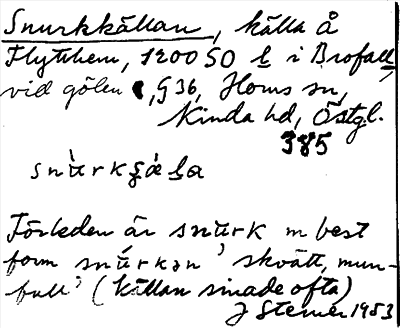 Snurkkällan, källa å
Flytthem, 1200 SO l i Brofall,
vid gölen, G 36, Horns sn,
Kinda hd, Östgl.
385
snùrkʂǽla
Förleden är snurk m best
form snúrkən 'skvätt, mun-
full' (källan sinade ofta)
J Stener 1953